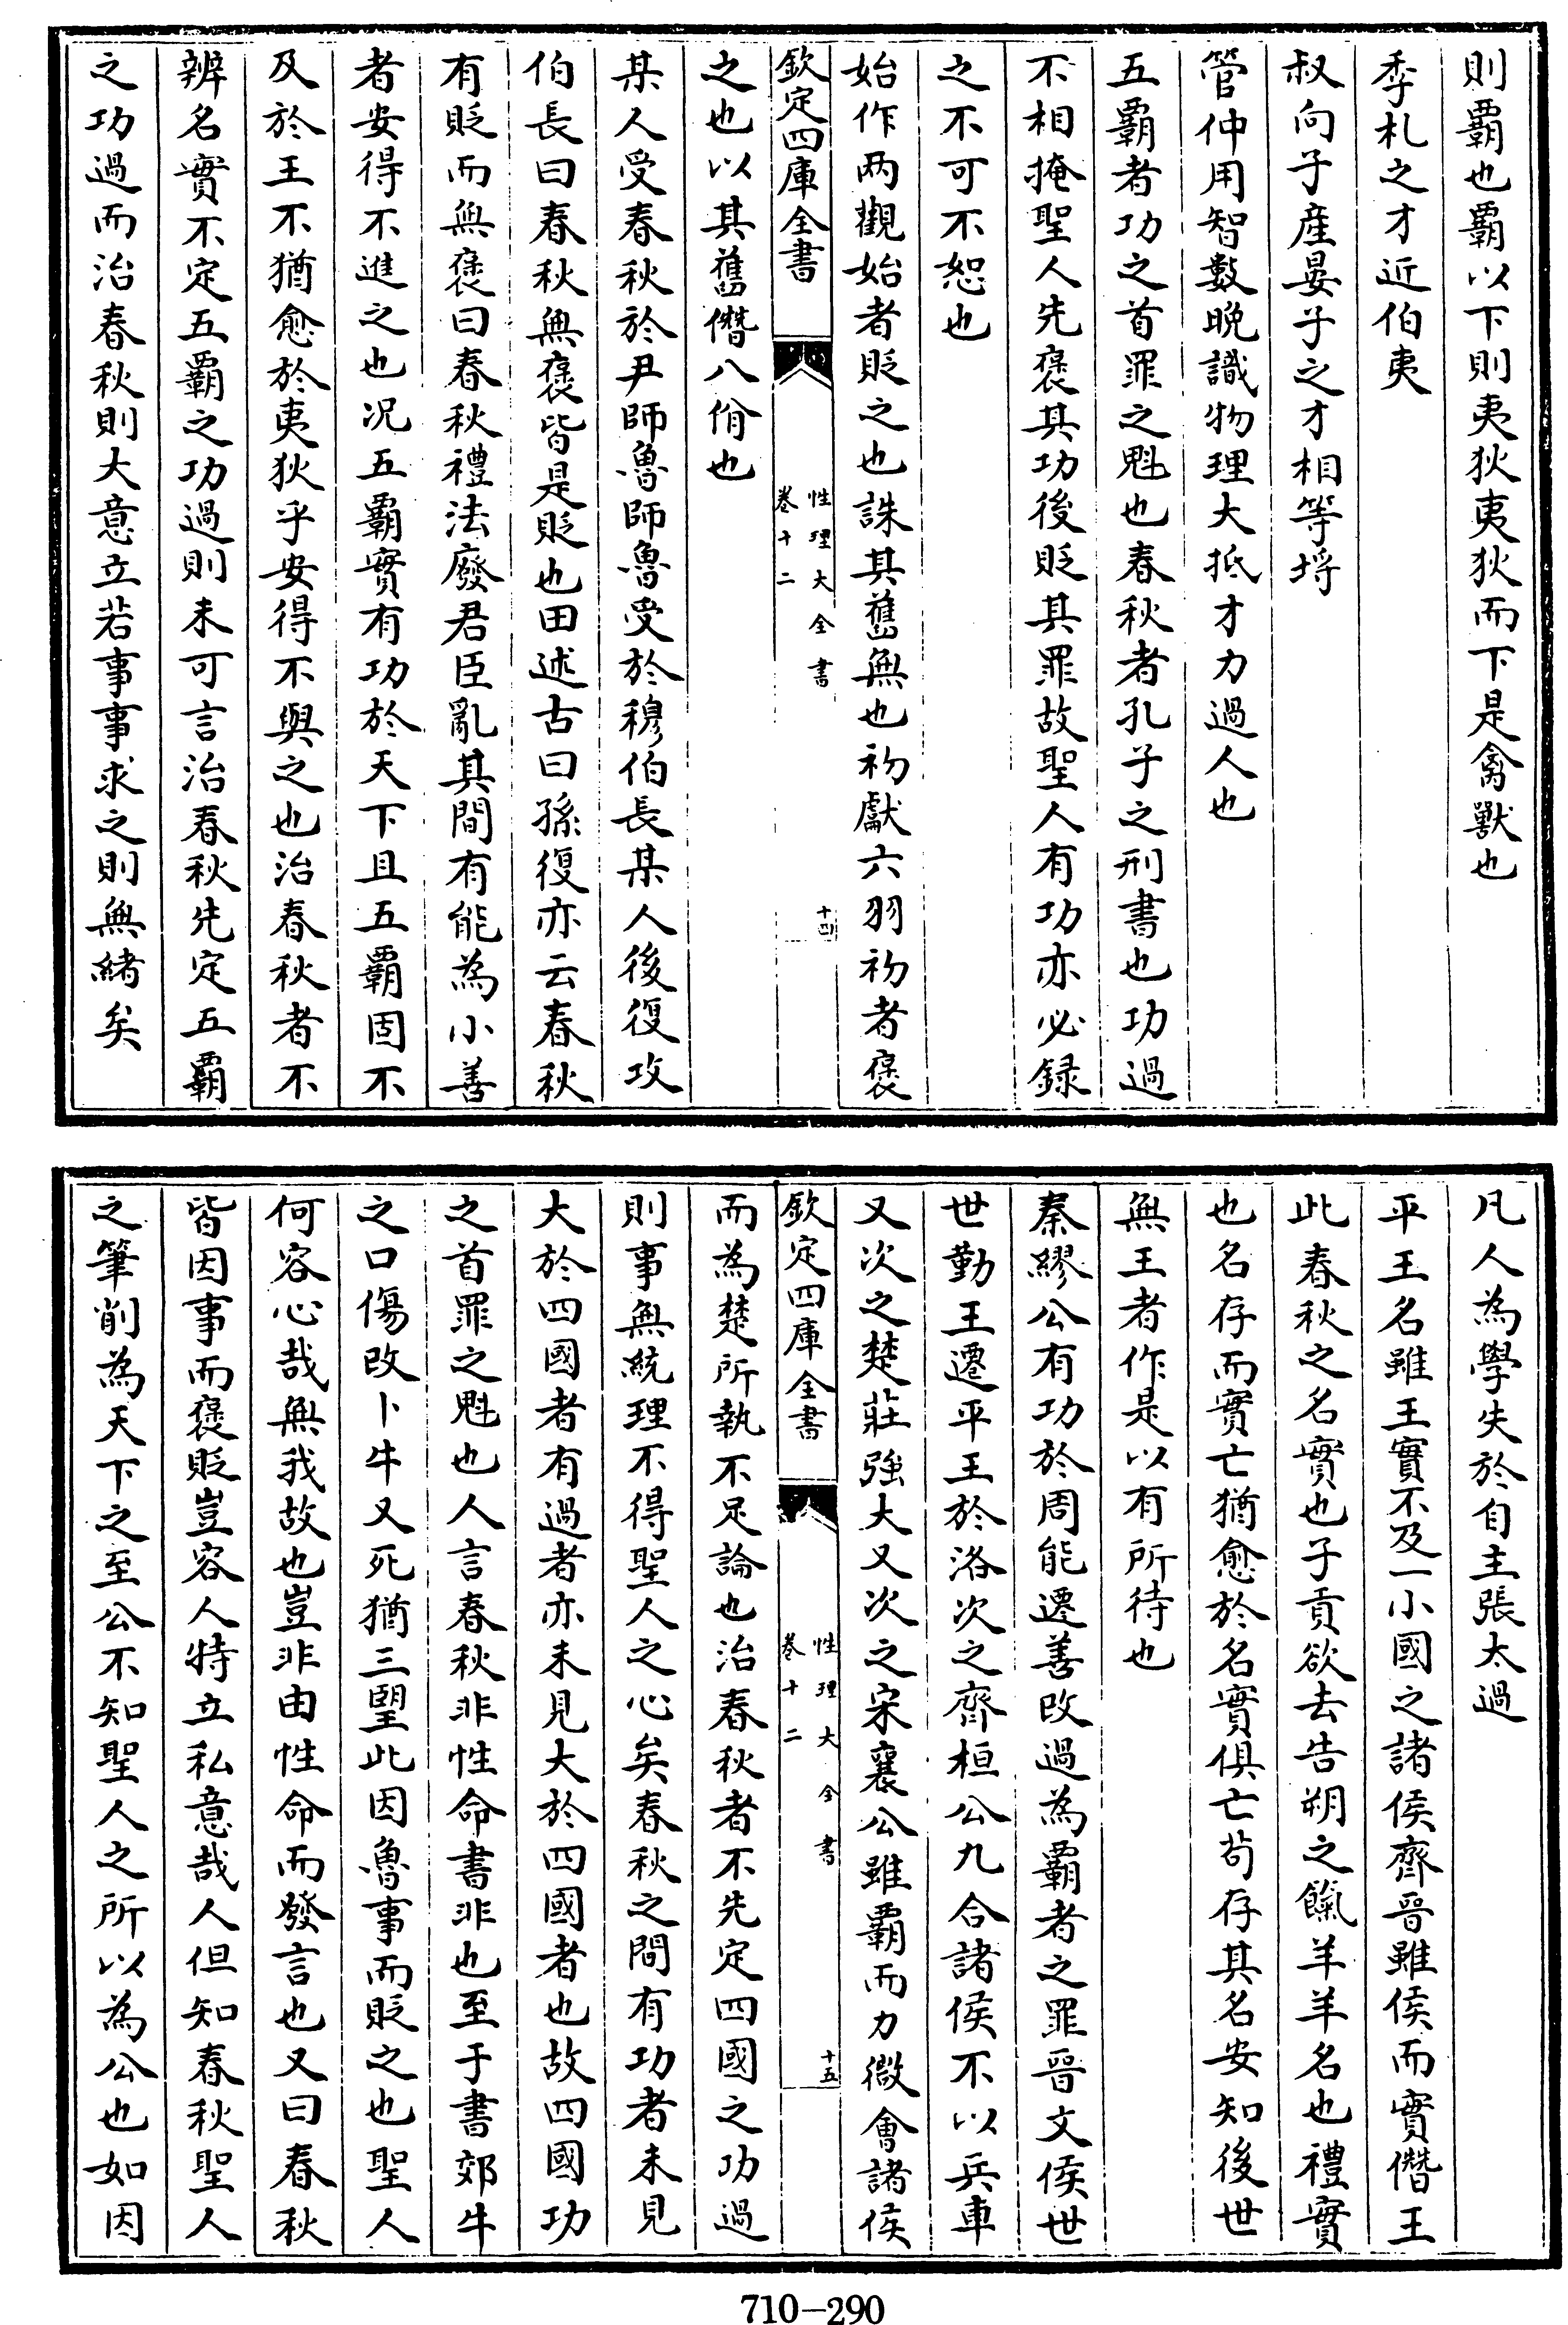 則霸也霸以下則夷狄夷狄而下是禽獸也
季札之才近伯夷
叔向子産晏子之才相等埒
管仲用智數晚識物理大抵才力過人也
五霸者功之首罪之魁也春秋者孔子之刑書也功過
不相掩聖人先褒其功後貶其罪故聖人有功亦必録
之不可不恕也
始作兩觀始者貶之也誅其舊無也初獻六羽初者褒
欽定四庫全書
性理大全書
卷十二
十四
之也以其舊僭八佾也
某人受春秋於尹師魯師魯受於穆伯長某人後復攻
伯長曰春秋無褒皆是貶也田述古曰孫復亦云春秋
有貶而無褒曰春秋禮法廢君臣亂其間有能為小善
者安得不進之也况五霸實有功於天下且五霸固不
及於王不猶愈於夷狄乎安得不與之也治春秋者不
辨名實不定五霸之功過則未可言治春秋先定五霸
之功過而治春秋則大意立若事事求之則無緒矣
凡人為學失於自主張太過
平王名雖王實不及一小國之諸侯齊晉雖侯而實僭王
此春秋之名實也子貢欲去告朔之餼羊羊名也禮實
也名存而實亡猶愈於名實俱亡茍存其名安知後世
無王者作是以有所待也
秦繆公有功於周能遷善改過為霸者之罪晉文侯世
世勤王遷平王於洛次之齊桓公九合諸侯不以兵車
又次之楚莊強大又次之宋襄公雖霸而力微會諸侯
欽定四庫全書
性理大全書
卷十二
十五
而為楚所執不足論也治春秋者不先定四國之功過
則事無統理不得聖人之心矣春秋之間有功者未見
大於四國者有過者亦未見大於四國者也故四國功
之首罪之魁也人言春秋非性命書非也至于書郊牛
之口傷改卜牛又死猶三望此因魯事而貶之也聖人
何容心哉無我故也豈非由性命而發言也又曰春秋
皆因事而褒貶豈容人特立私意哉人但知春秋聖人
之筆削為天下之至公不知聖人之所以為公也如因
710-290